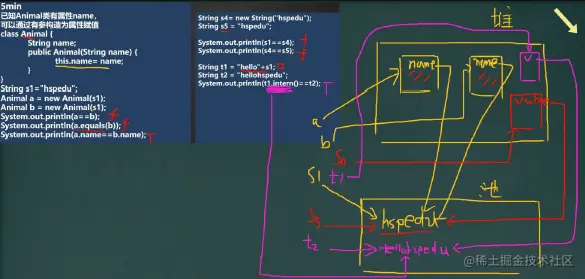 5min
已知Animal类有属性name,
可以通过有参构造为属性赋值
class Animal {
String name;
public Animal(String name) {
this.name= name;
}
}
String s1="hspedu";
Animal a = new Animal(s1);
Animal b = new Animal(s1);
System.out.println(a==b); f
System.out.println(a.equals(b)); f
System.out.println(a.name==b.name); T
String s4= new String("hspedu");
String s5 = "hspedu";
System.out.println(s1==s4); f
System.out.println(s4==s5); f
String t1 = "hello"+s1;
String t2 = "hellohspedu";
System.out.println(t1.intern()==t2); T
堆
name
name
v
value
a
b
t1
s1
池
s5
hspedu
t2
hellohspedu
@稀土掘金技术社区